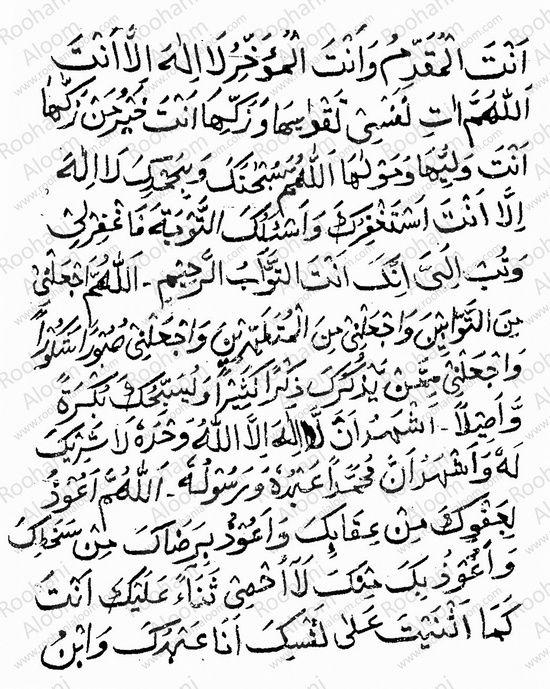 اَنْتَ الْمُقَدِّمُ وَاَنْتَ الْمُؤَخِّرُ لَا اِلٰهَ اِلَّا اَنْتَ
اَللّٰهُمَّ اٰتِ نَفْسِیْ تَقْوٰىهَا وَزَكِّهَا اَنْتَ خَيْرُ مَنْ زَكّٰهَا
اَنْتَ وَلِيُّهَا وَمَوْلٰهَا اَللّٰهُمَّ سُبْحٰنَكَ وَبِحَمْدِكَ لَا اِلٰهَ
اِلَّا اَنْتَ اَسْتَغْفِرُكَ وَاَسْئَلُكَ التَّوْبَةَ فَاغْفِرْلِیْ
وَتُبْ اِلَیَّ اِنَّكَ اَنْتَ التَّوَّابُ الرَّحِيْمِ۔ اَللّٰهُمَّ اجْعَلْنِیْ
مِنَ التَّوَّابِيْنَ وَاجْعَلْنِیْ مِنَ الْمُتَطَهِّرِيْنَ وَاجْعَلْنِیْ صَبُوْرًا شَكُوْرًا
وَاجْعَلْنِیْ مِمَّنْ يَذْكُرُكَ ذِكْرًا كَثِيْرًا وَيُسَبِّحُكَ بُكْرَةً
وَّاَصِيْلًا۔ اَشْهَدُ اَنْ لَّا اِلٰهَ اِلَّا اللّٰهُ وَحْدَهٗ لَا شَرِيْكَ
لَهٗ وَاَشْهَدُ اَنَّ مُحَمَّدًا عَبْدُهٗ وَرَسُوْلُهٗ۔ اَللّٰهُمَّ اَعُوْذُ
بِعَفْوِكَ مِنْ عِقَابِكَ وَاَعُوْذُ بِرَضَاكَ مِنْ سَخَطِكَ
وَاَعُوْذُ بِكَ مِنْكَ لَا اُحْصِیْ ثَنَاءً عَلَيْكَ اَنْتَ
كَمَا اَثْنَيْتَ عَلٰى نَفْسِكَ اَنَا عَبْدُكَ وَابْنُ